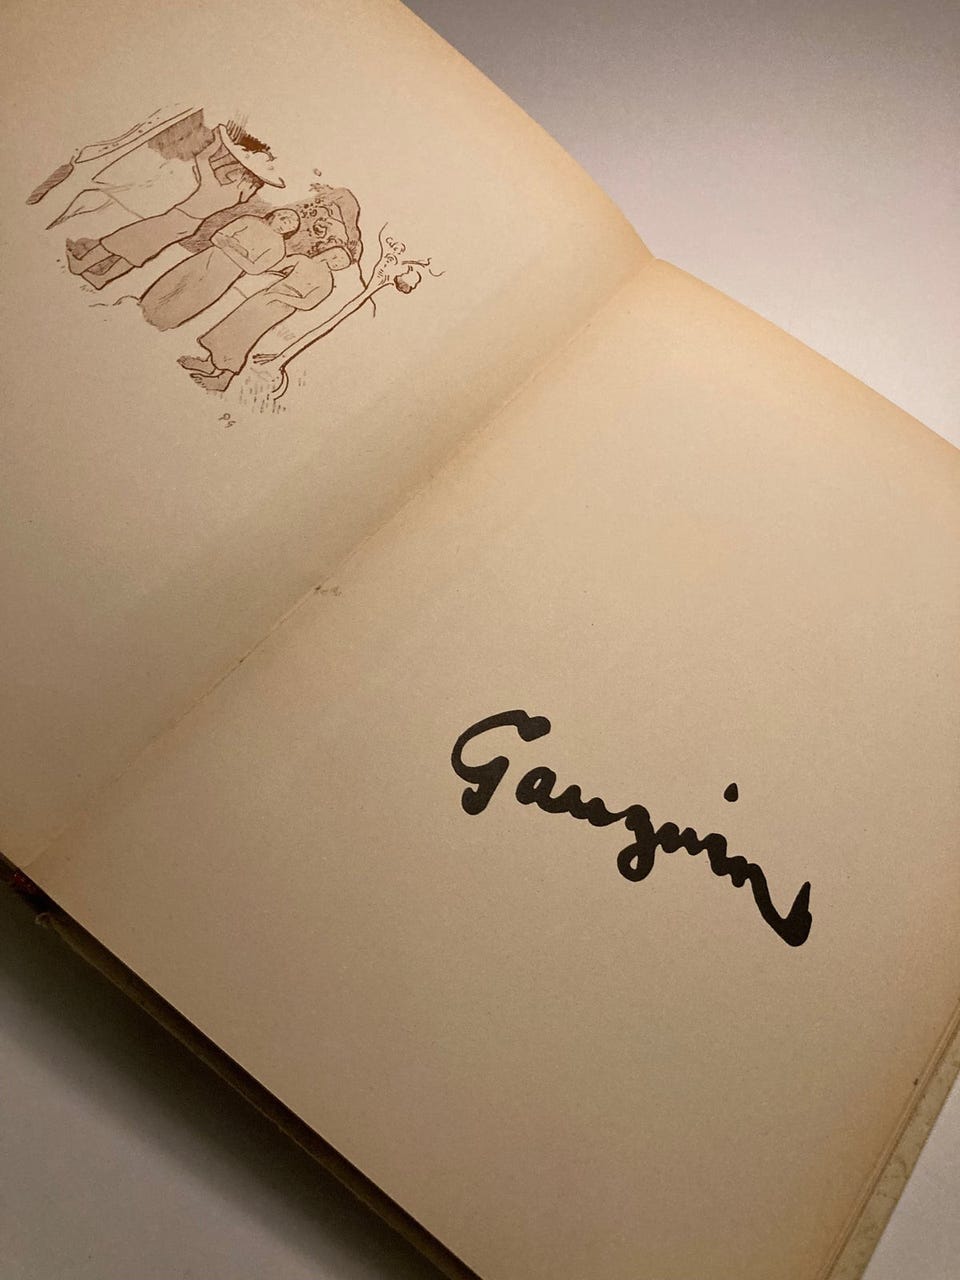 PG
Gauguin